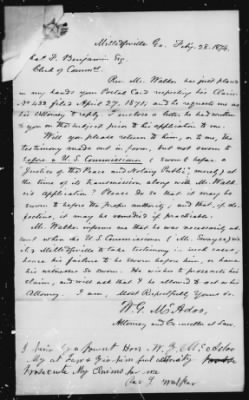 Milledgeville Ga. Feby. 28. 1874.
F. Benjamin Esq
Clerk of
Rev Mr. Walker has just placed
in my hands your Postal Card respecting his Claim
No 433 filed April 27, 1871; and he requests me as
his Attorney to reply. I enclose a letter he had written
to you on the subject prior to his application to me.
Will you please return to him, or to me, the
testimony made out in form, but not sworn to
before a U.S. Commissioner (sworn before a
Justice of the Peace and Notary Public, merely) at
the time of its transmission along with Mr. Walk
er's application? Please do so that it may be
sworn to before the proper authority, and that, if de
fective, it may be remedied if practicable.
Mr. Walker informs me that he was necessarily ab
sent when the U.S. Commissioner (Mr.
in Milledgeville to take testimony in such cases,
hence his failure to be sworn before him, or have
his witnesses so sworn. He wishes to prosecute his
claim, and will ask that he allowed to act as his
Attorney. I am, Most Respectfully Yours &c.
W. G. McAdoo,
Attorney and Counsellor at Law.
W. G. McAdoo
My at Law & Give him full authority
Prosecute My Claims for me
Walker